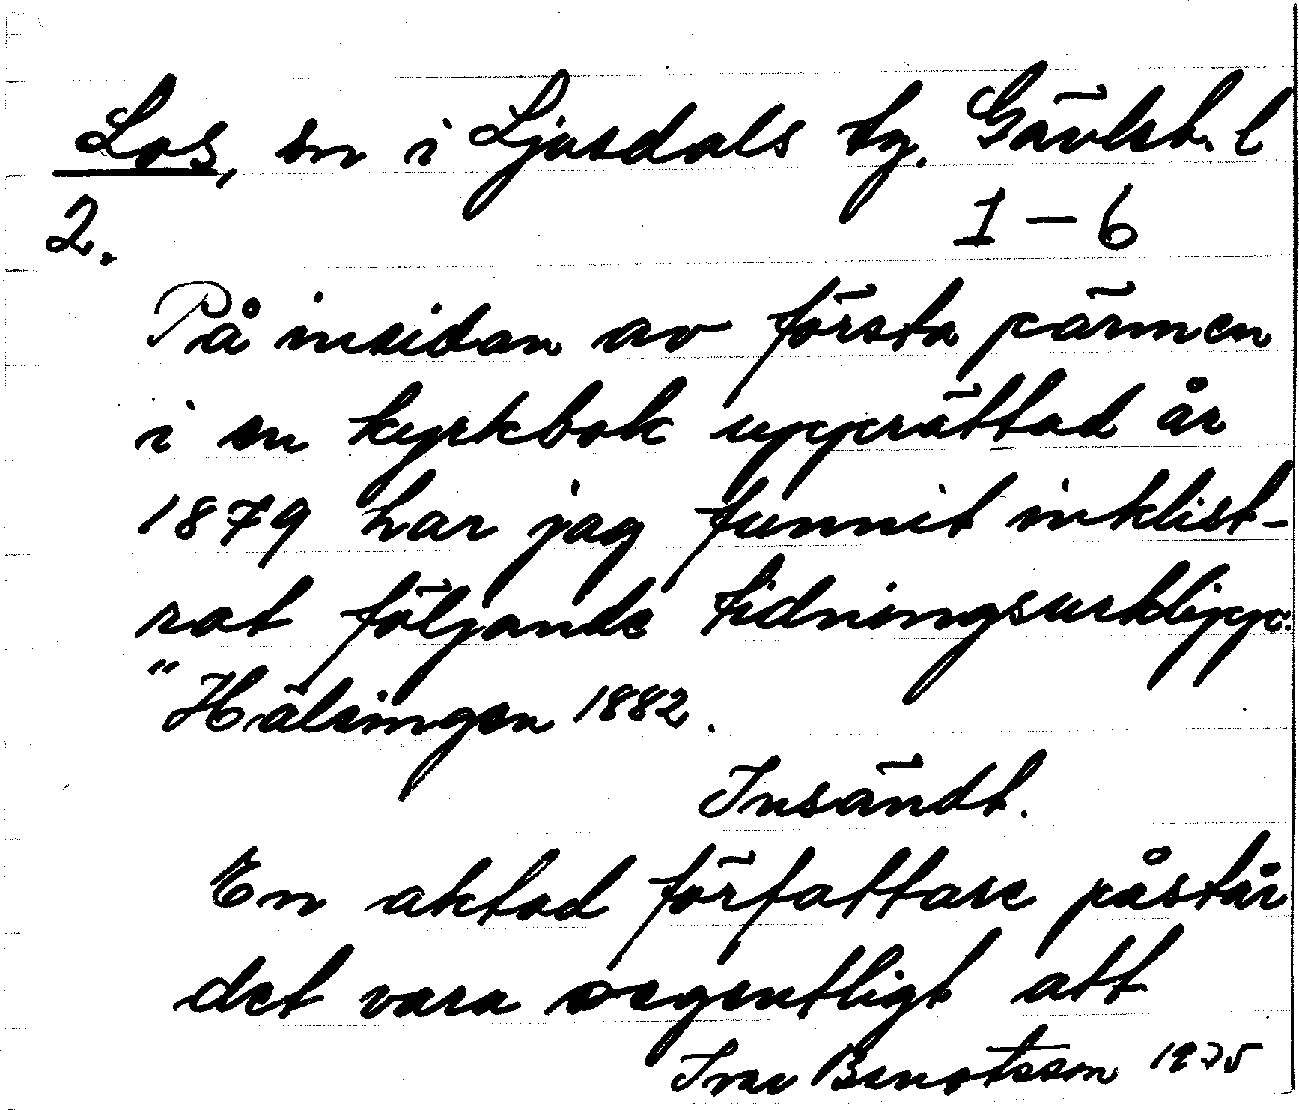 Los, sn i Ljusdals tg. Gävleb. l
2.
1-6
På insidan av första pärmen
i en kyrkbok upprättad år
1879 har jag funnit inklist-
rat följande tidningsurklipp:
"Hälsingen 1882.
Insändt.
En aktad författare påstår
det vara oegentligt att
Ivar Bengtsson 1975